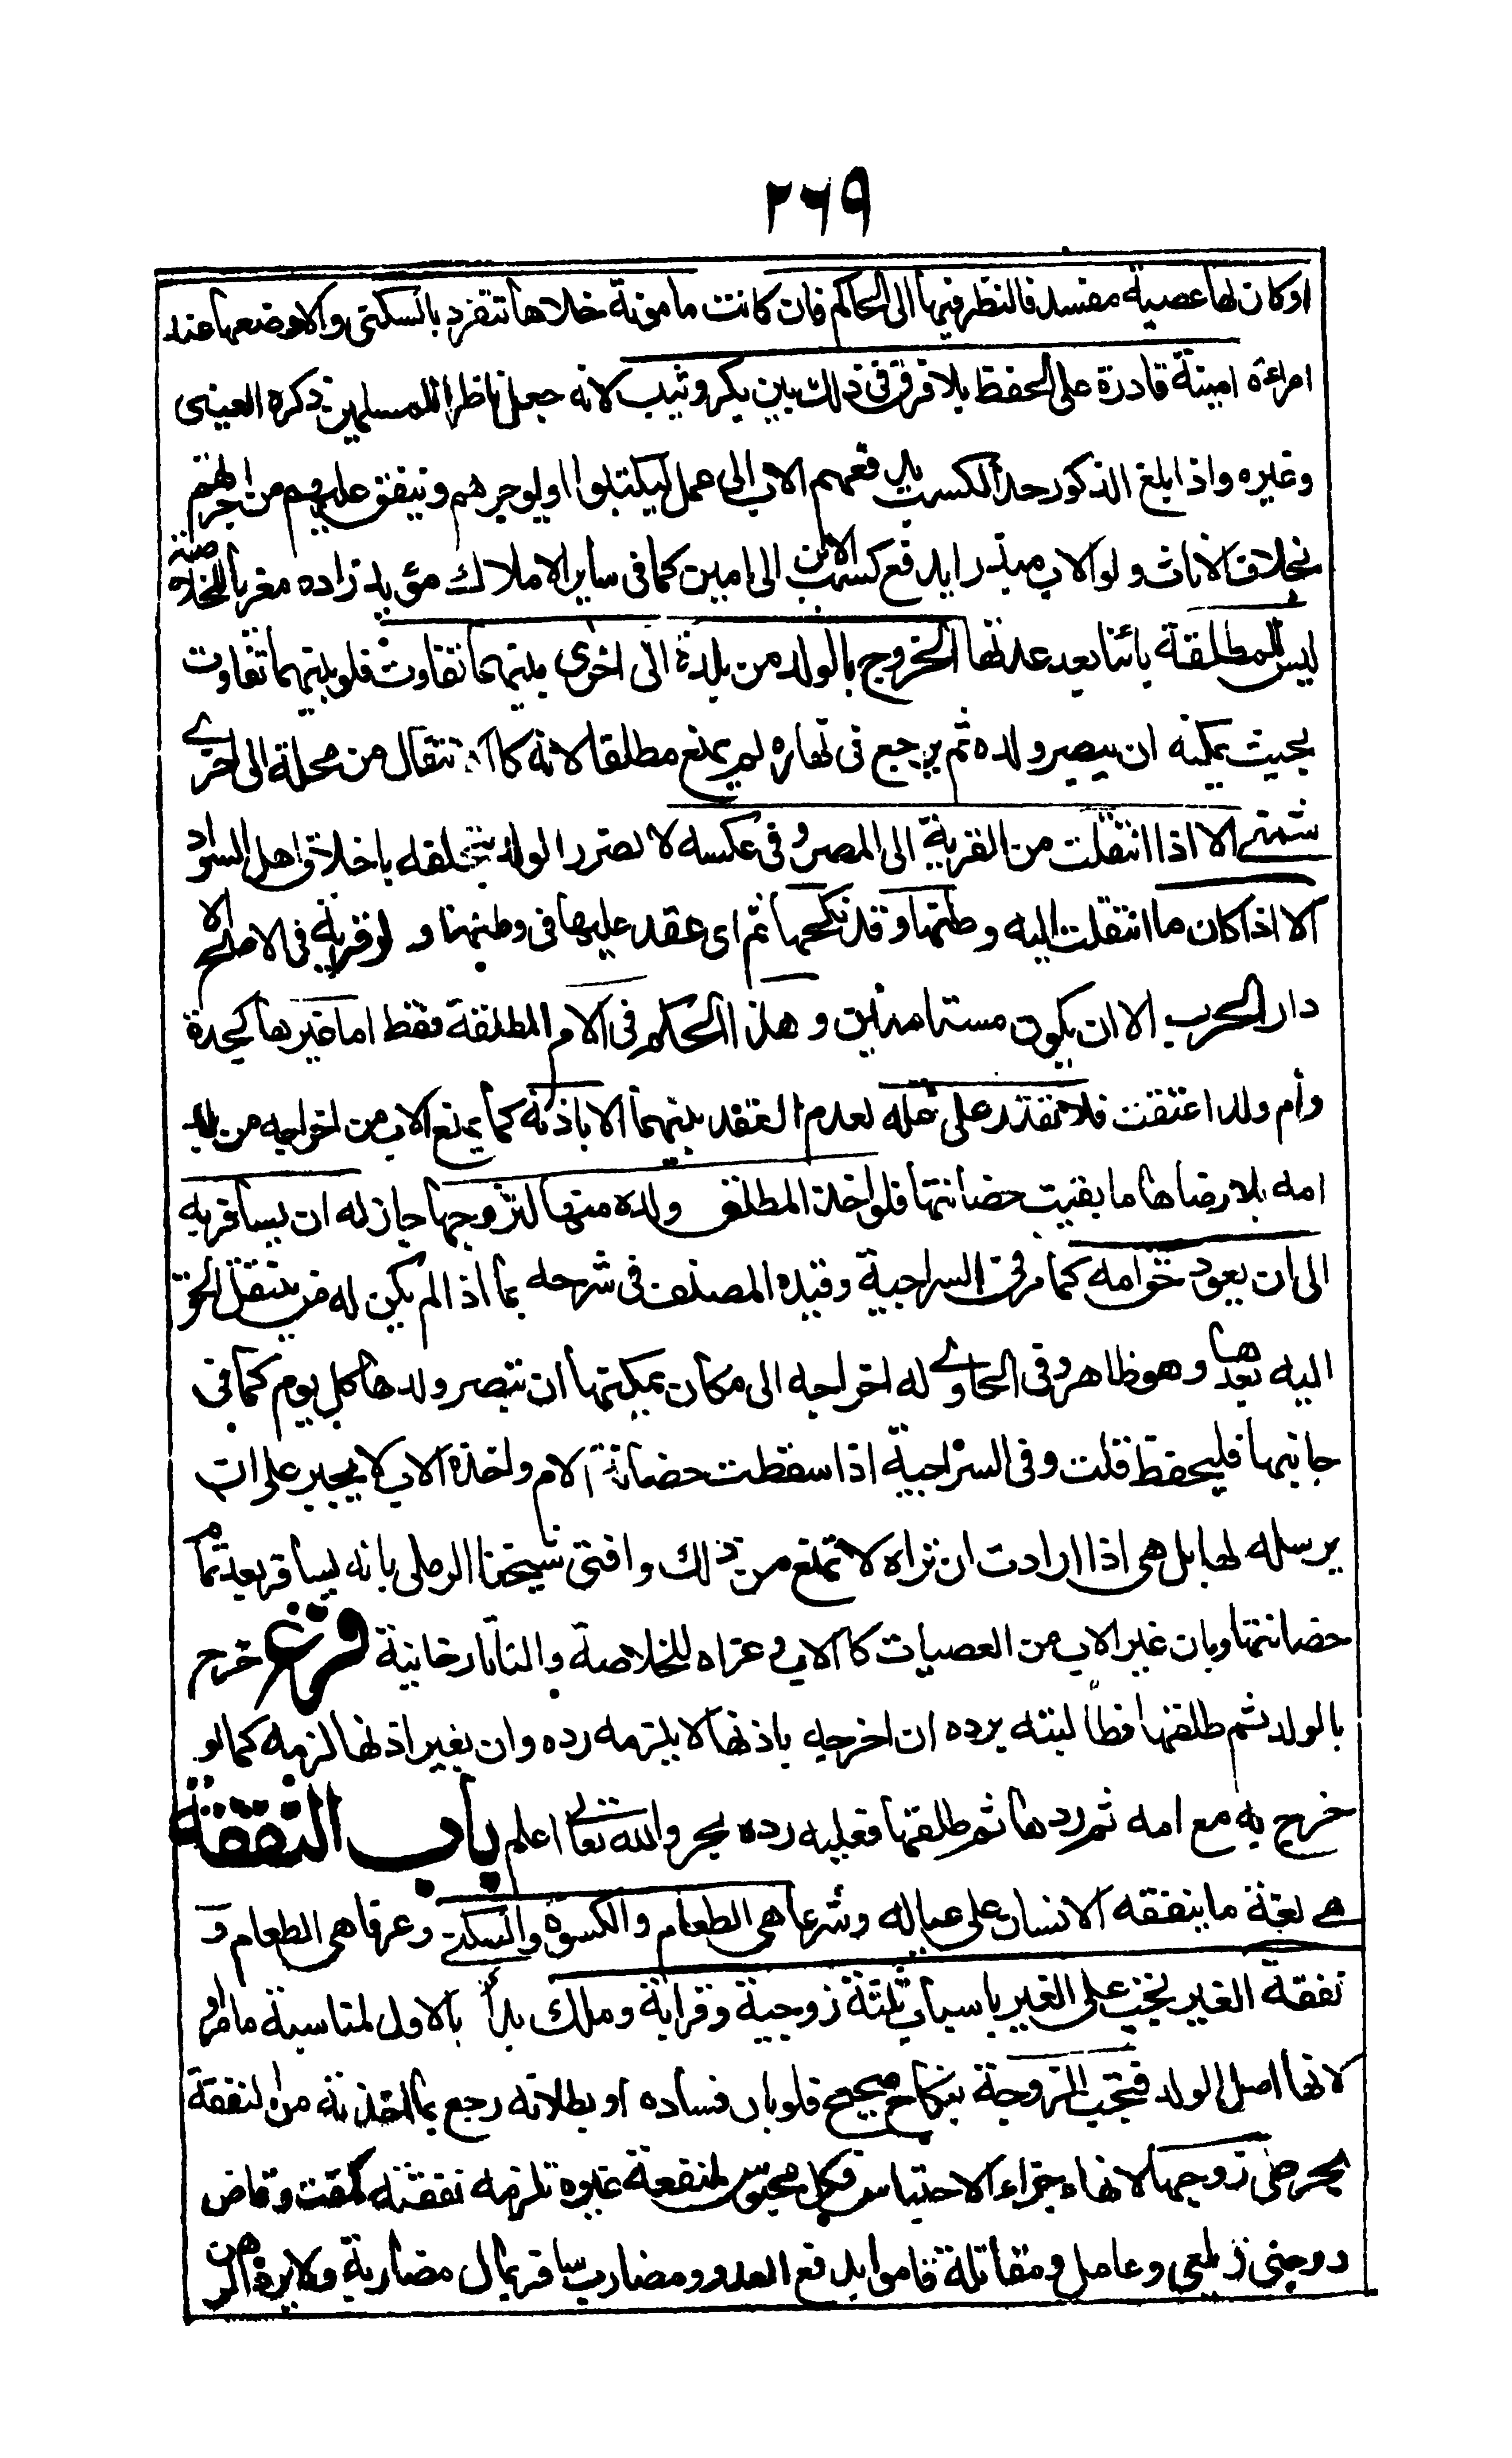 ٢٦٩
او كان لها عصبة مفسد فالنظر فيها الى الحاكم فان كانت مامونة خلاها تنفرد بالسكنى والا وضعها عند
امراءة امينة قادرة على الحفظ بلا فرق فى ذلك بين بكر وثيب لانه جعل ناظرا للمسلمين ذكره العينى
وغيره واذا بلغ الذكور حد الكسب يدفعهم الاب الى عمل ليكتبلوا او يوجرهم وينفق عليهم من اجرتهم
بخلاف الاناث ولو الاب مبذرا يدفع كسب الابن الى امين كما فى ساير الاملاك مؤيد زاده مغربا للخلاصة
ليس للمطلقة بائنا بعد عدتها الخروج بالولد من بلدة الى اخرى بينهما تفاوت فلو بينهما تفاوت
بحيث يمكنه ان يبصر ولده ثم يرجع فى نهاره لم يمنع مطلقا لانه كالانتقال من محلة الى اخرى
شمنى الا اذا انتقلت من القرية الى المصر وفى عكسه لا لضرر الولد بتخلقه باخلاق اهل السواد
الا اذا كان ما انتقلت اليه وطنها وقد نكحها ثم اى عقد عليها فى وطنها ولو قرية فى الاصح الا
دار الحرب الا ان يكون مستامنين وهذا الحكم فى الام المطلقة فقط اما غيرها كجدة
وأم ولد اعتقت فلا تقدر على نقله لعدم العقد بينهما الا باذنه كما يمنع الاب من اخراجه من بلد
امه بلا رضاها ما بقيت حضانتها فلو اخذ المطلق ولده منها لتزوجها جاز له ان يسافر به
الى ان يعود حق امه كما مر فى السراجية وقيده المصنف فى شرحه بما اذا لم يكن له من ينتقل الحق
اليه بعدها وهو ظاهر وفى الحاوى له اخراجه الى مكان يمكنها ان تبصر ولدها كل يوم كما فى
جانبها فليحفظ قلت وفى السراجية اذا سقطت حضانة الام واخذه الاب لا يجبر على ان
يرسله لها بل هى اذا ارادت ان تراه لا تمنع من ذلك وافتى شيخنا الرملى بانه يسافر بعد تمام
حضانتها وبان غير الاب من العصبات كالاب وعزاه للخلاصة والتاتارخانية فرع خرج
بالولد ثم طلقها فطالبته برده ان اخرجه باذنها لا يلزمه رده وان بغير اذنها لزمه كما لو
خرج به مع امه ثم ردها ثم طلقها فعليه رده بحر والله تعالى اعلم باب النفقة
هى لغة ما ينفقه الانسان على عياله وشرعا هى الطعام والكسوة والسكنى وعرفا هى الطعام و
نفقة الغير تجب على الغير باسباب ثلثة زوجية وقرابة وملك بدأ بالاول لمناسبة ما مر او
لانها اصل الولد فتجب للزوجة بنكاح صحيح فلو بان فساده او بطلانه رجع بما اخذته من النفقة
بحر على زوجها لانها جزاء الاحتباس فكل محبوس لمنفعة غيره تلزمه نفقته كمفت وقاض
ووصى زيلعى وعامل ومقاتلة قاموا بدفع العدو ومضارب سافر بمال مضاربة ولا يرد الرهن